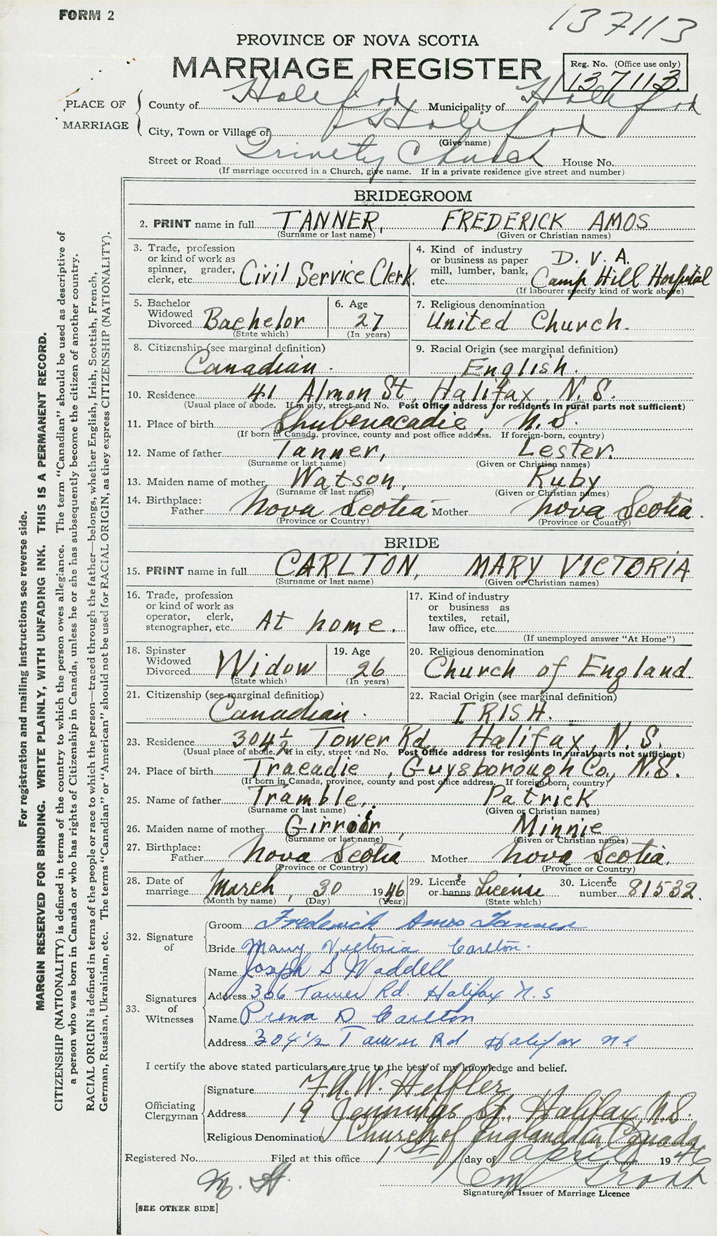 FORM 2
137113
PROVINCE OF NOVA SCOTIA
MARRIAGE REGISTER
Reg. No. (Office use only)
137113.
PLACE OF MARRIAGE
County of Halifax Municipality of Halifax
City, Town or Village of Halifax
(Give name)
Street or Road Trinity Church House No.
(If marriage occurred in a Church, give name. If in a private residence give street and number)
BRIDEGROOM
2. PRINT name in full TANNER, FREDERICK AMOS
(Surname or last name) (Given or Christian names)
3. Trade, profession or kind of work as spinner, grader, clerk, etc. Civil Service Clerk.
4. Kind of industry or business as paper mill, lumber, bank, etc. D. V. A. Camp Hill Hospital
(If labourer specify kind of work above)
5. Bachelor Widowed Divorced Bachelor
(State which)
6. Age 27
(In years)
7. Religious denomination
United Church.
8. Citizenship (see marginal definition)
Canadian.
9. Racial Origin (see marginal definition)
English.
10. Residence 41 Almon St, Halifax, N. S.
(Usual place of abode. If in city, street and No. Post Office address for residents in rural parts not sufficient)
11. Place of birth Shubenacadie, N. S.
(If born in Canada, province, county and post office address. If foreign-born, country)
12. Name of father Tanner, Lester.
(Surname or last name) (Given or Christian names)
13. Maiden name of mother Watson, Ruby
(Surname or last name) (Given or Christian names)
14. Birthplace: Father Nova Scotia Mother Nova Scotia.
(Province or Country) (Province or Country)
BRIDE
15. PRINT name in full CARLTON, MARY VICTORIA
(Surname or last name) (Given or Christian names)
16. Trade, profession or kind of work as operator, clerk, stenographer, etc. At home.
17. Kind of industry or business as textiles, retail, law office, etc.
(If unemployed answer "At Home")
18. Spinster Widowed Divorced Widow
(State which)
19. Age 26
(In years)
20. Religious denomination
Church of England.
21. Citizenship (see marginal definition)
Canadian.
22. Racial Origin (see marginal definition)
IRISH.
23. Residence 304½ Tower Rd, Halifax, N. S.
(Usual place of abode. If in city, street and No. Post Office address for residents in rural parts not sufficient)
24. Place of birth Tracadie, Guysborough Co., N.S.
(If born in Canada, province, county and post office address. If foreign-born, country)
25. Name of father Tramble, Patrick
(Surname or last name) (Given or Christian names)
26. Maiden name of mother Girroir, Minnie
(Surname or last name) (Given or Christian names)
27. Birthplace: Father Nova Scotia Mother Nova Scotia.
(Province or Country) (Province or Country)
28. Date of marriage March, 30 1946
(Month by name) (Day) (Year)
29. Licence or banns License
(State which)
30. Licence number 81532.
32. Signature of
Groom Frederick Amos Tanner
Bride Mary Victoria Carlton.
33. Signatures of Witnesses
Name Joseph S Waddell
Address 306 Tower Rd. Halifax N.S
Name D Carlton
Address 304½ Tower Rd Halifax
I certify the above stated particulars are true to the best of my knowledge and belief.
Officiating Clergyman
Signature F.A.W. Heffler
Address 19 Jennings St. Halifax N.S.
Religious Denomination Church of England in Canada
Registered No. Filed at this office 1st day of April 1946
Signature of Issuer of Marriage Licence
[SEE OTHER SIDE]
For registration and mailing instructions see reverse side.
MARGIN RESERVED FOR BINDING. WRITE PLAINLY, WITH UNFADING INK. THIS IS A PERMANENT RECORD.
CITIZENSHIP (NATIONALITY) is defined in terms of the country to which the person owes allegiance. The term "Canadian" should be used as descriptive of
a person who was born in Canada or who has rights of Citizenship in Canada, unless he or she has subsequently become the citizen of another country.
RACIAL ORIGIN is defined in terms of the people or race to which the person—traced through the father—belongs, whether English, Irish, Scottish, French,
German, Russian, Ukrainian, etc. The terms "Canadian" or "American" should not be used for RACIAL ORIGIN, as they express CITIZENSHIP (NATIONALITY).